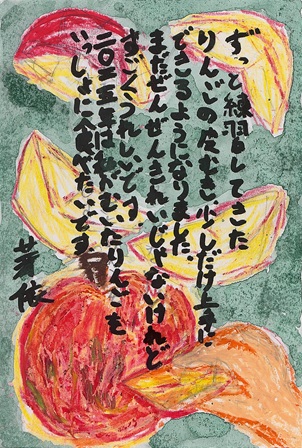 ずっと練習してきた
りんごの皮むき、少しだけ上手に
できるようになりました。
まだぜんぜんきれいじゃないけれど
すごくうれしいです。
二〇二五年は私がむいたりんごも
いっしょに食べたいです。
芽依